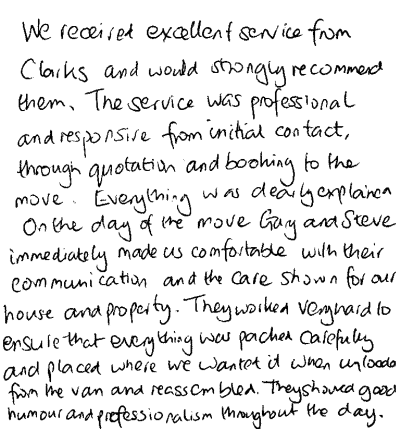 We received excellent service from
Clarks and would strongly recommend
them. The service was professional
and responsive from initial contact,
through quotation and booking to the
move. Everything was clearly explained
On the day of the move Gary and Steve
immediately made us comfortable with their
communication and the care shown for our
house and property. They worked very hard to
ensure that everything was packed carefully
and placed where we wanted it when unloaded
from the van and reassembled. They showed good
humour and professionalism throughout the day.